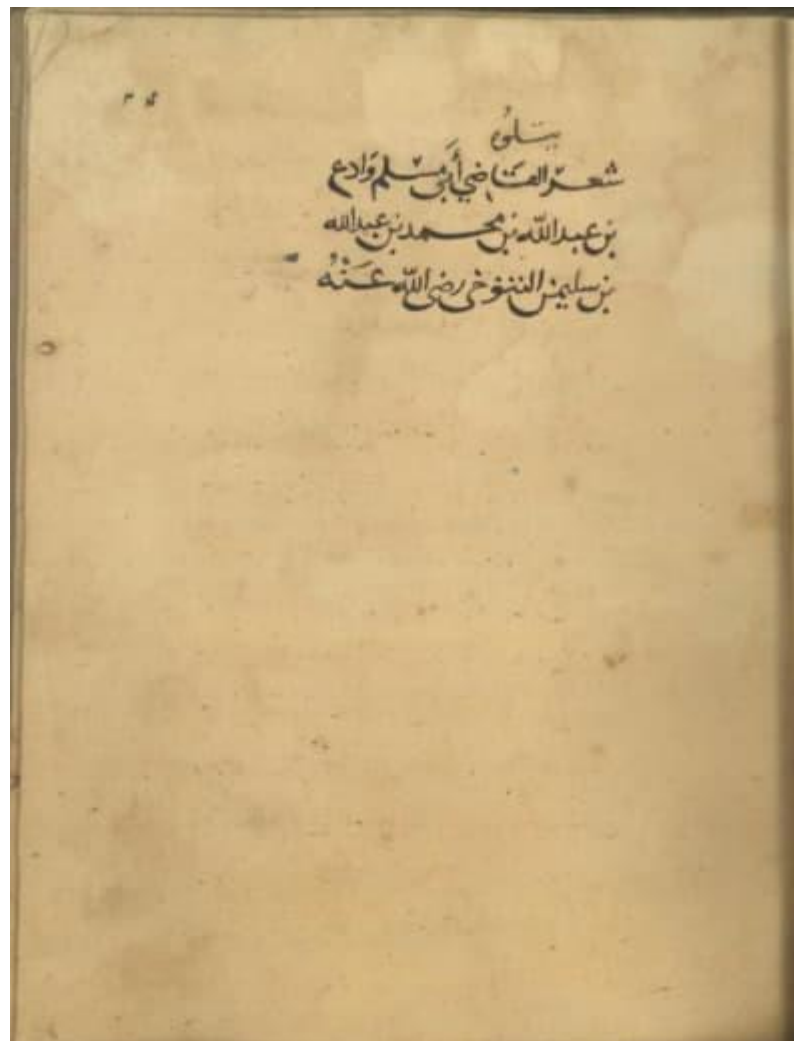 يتلوه
شعر القاضي أبي مسلم وادع
بن عبد الله بن محمد بن عبد الله
بن سليمن التنوخي رضى الله عنه